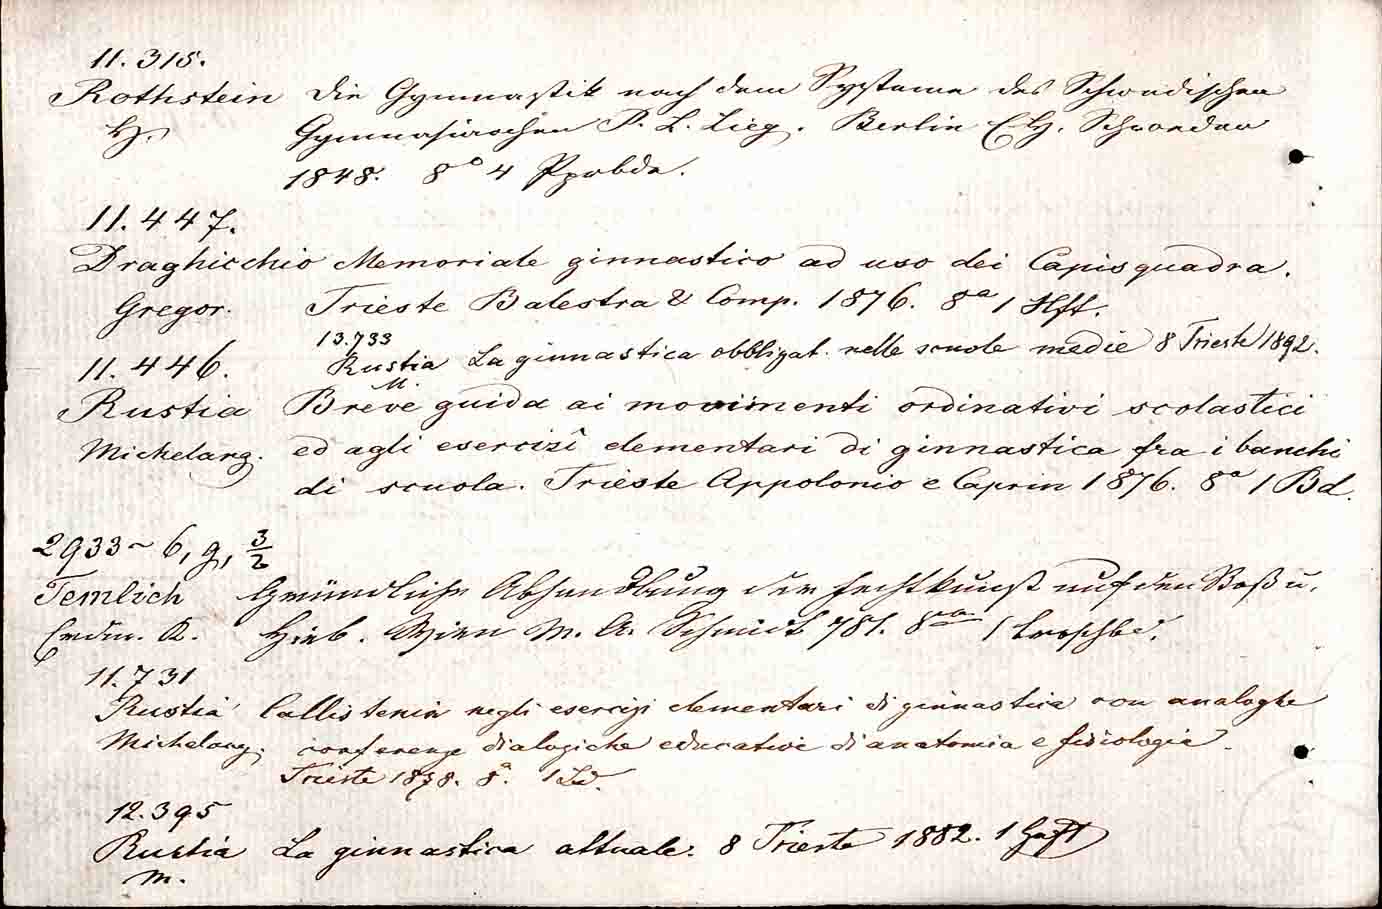 11.315.
Rothstein Die Gymnastik nach dem Systeme des Schwedischen
H. Gymnasiarchen P. L. Berlin E. H. Schroeder
1848. 8° 4 Ppbde.
11.447.
Draghicchio Memoriale ginnastico ad uso dei Capisquadra.
Gregor. Trieste Balestra & Comp. 1876. 8° 1 Hft.
13.733
Rustia La ginnastica obbligat. nelle scuole medie 8 Trieste 1892.
M.
11.446.
Rustia Breve guida ai movimenti ordinativi scolastici
Michelang. ed agli esercizî elementari di ginnastica fra i banchi
di scuola. Trieste Appolonio e Caprin 1876. 8° 1 Bd.
2933~6, g, 3/2
Temlich Gründliche Abhandlung der Fechtkunst auf den Stoß u.
K. Hieb. Wien M. A. Schmidt 781. 1
11.731
Rustia Callistenia negli esercizi elementari di ginnastica con analoghe
Michelang. conferenze dialogiche educative di anatomia e fisiologia.
Trieste 1878. 8°. 1 Bd.
12.395
Rustia La ginnastica attuale. 8 Trieste 1882. 1 Heft
M.